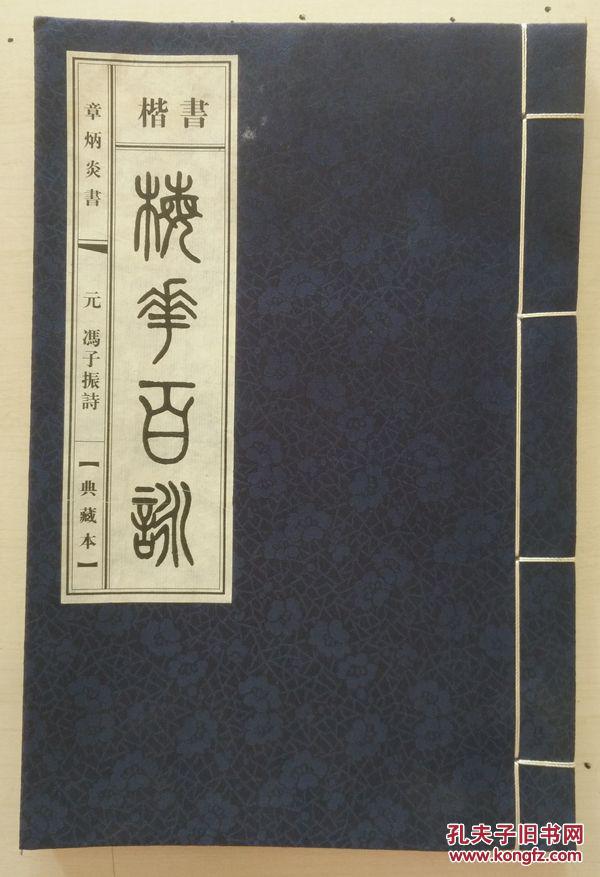 楷書
梅華百詠
章炳炎書
元 馮子振詩
【典藏本】
孔夫子旧书网
www.kongfz.com